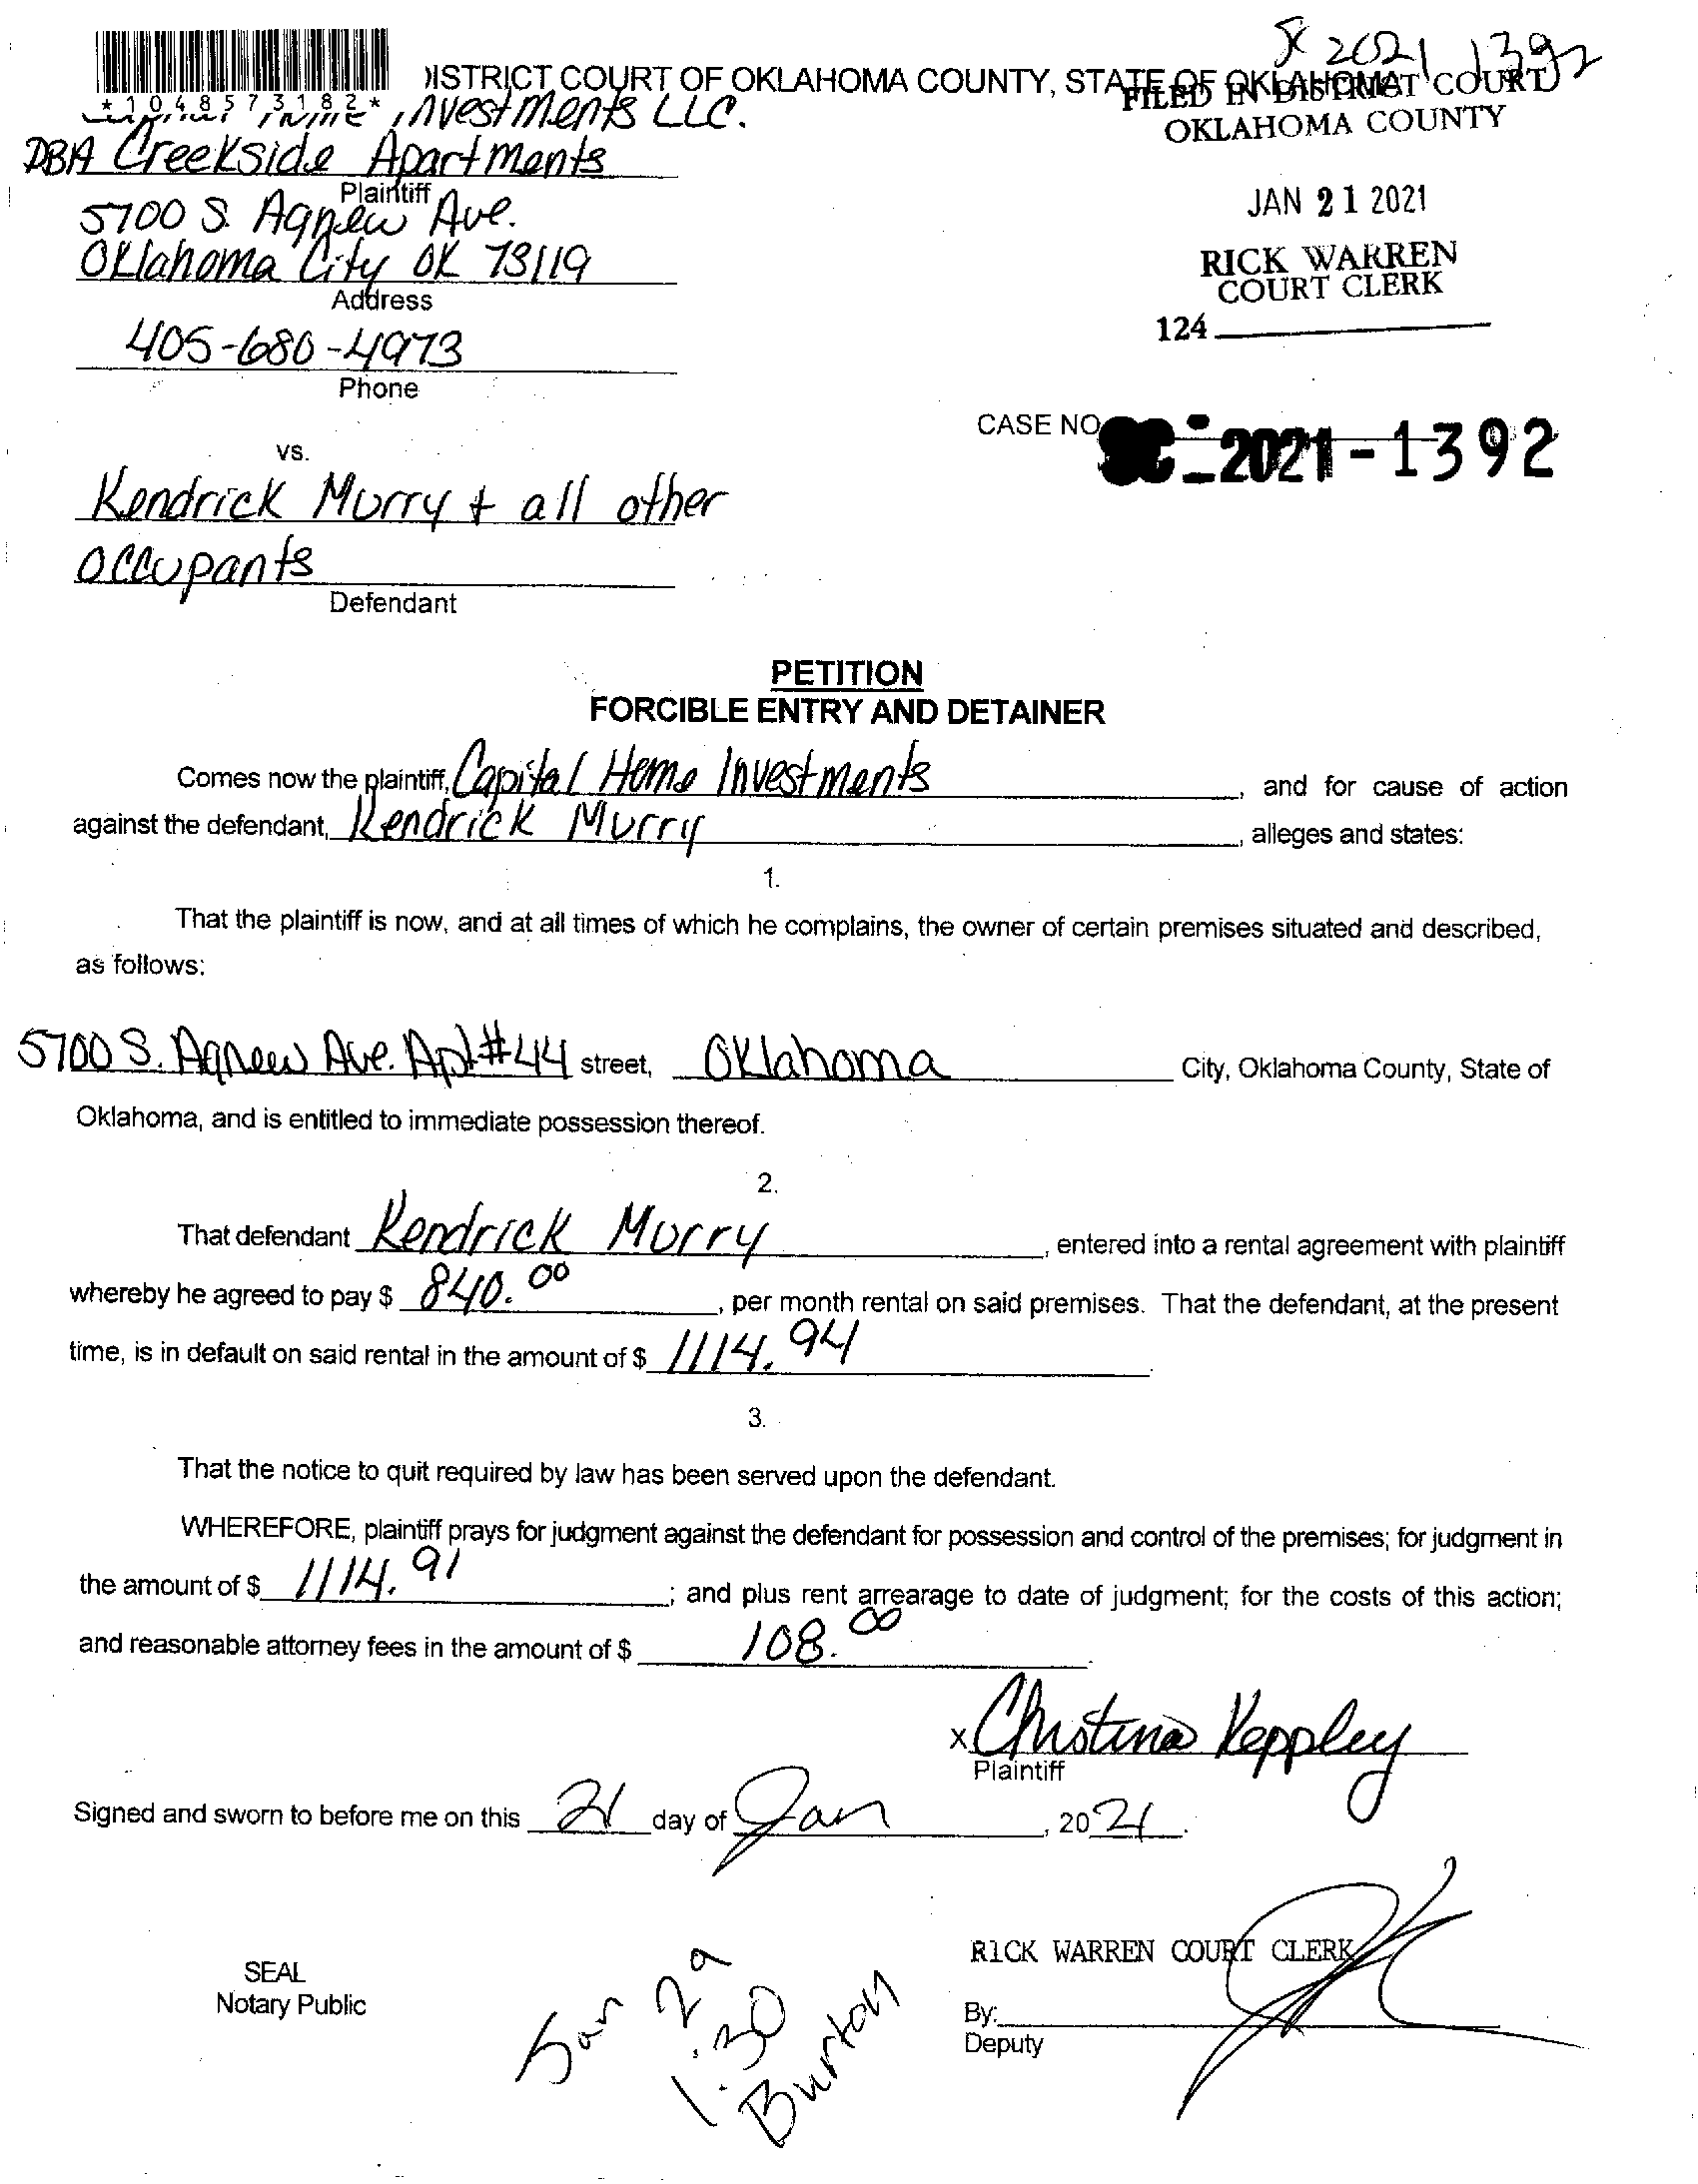 SC 2021 1392
*1048573182*
DISTRICT COURT OF OKLAHOMA COUNTY, STATE OF OKLAHOMA
FILED IN DISTRICT COURT
OKLAHOMA COUNTY
JAN 21 2021
RICK WARREN
COURT CLERK
124
investments LLC.
DBA Creekside Apartments
Plaintiff
5700 S. Agnew Ave.
Oklahoma City OK 73119
Address
405-680-4973
Phone
CASE NO SC-2021-1392
vs.
Kendrick Murry + all other
occupants
Defendant
PETITION
FORCIBLE ENTRY AND DETAINER
Comes now the plaintiff, Capital Home Investments, and for cause of action
against the defendant, Kendrick Murry, alleges and states:
1.
That the plaintiff is now, and at all times of which he complains, the owner of certain premises situated and described,
as follows:
5700 S. Agnew Ave. Apt #44 street, Oklahoma City, Oklahoma County, State of
Oklahoma, and is entitled to immediate possession thereof.
2.
That defendant Kendrick Murry, entered into a rental agreement with plaintiff
whereby he agreed to pay $ 840.00, per month rental on said premises. That the defendant, at the present
time, is in default on said rental in the amount of $ 1114.94.
3.
That the notice to quit required by law has been served upon the defendant.
WHEREFORE, plaintiff prays for judgment against the defendant for possession and control of the premises; for judgment in
the amount of $ 1114.91; and plus rent arrearage to date of judgment; for the costs of this action;
and reasonable attorney fees in the amount of $ 108.00.
x Christina Keppley
Plaintiff
Signed and sworn to before me on this 21 day of Jan, 2021.
RICK WARREN COURT CLERK
SEAL
Notary Public
By:
Deputy
Jan 29
1:30
Burton